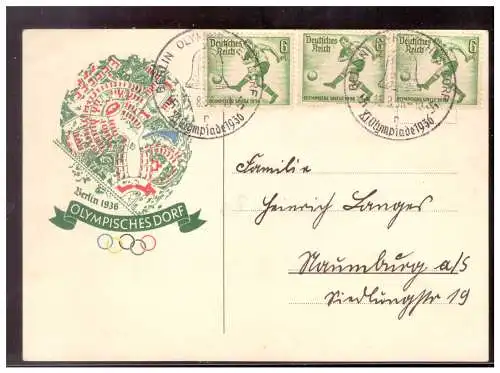 Deutsches Reich 6
OLYMPISCHE SPIELE 1936
Deutsches Reich 6
OLYMPISCHE SPIELE 1936
Deutsches Reich 6
OLYMPISCHE SPIELE 1936
BERLIN OLYMPISCHES DORF
XI. Olympiade 1936
BERLIN OLYMPISCHES DORF
XI. Olympiade 1936
Berlin 1936
OLYMPISCHES DORF
Familie
Heinrich Langes
Naumburg a/S
Siedlungstr 19